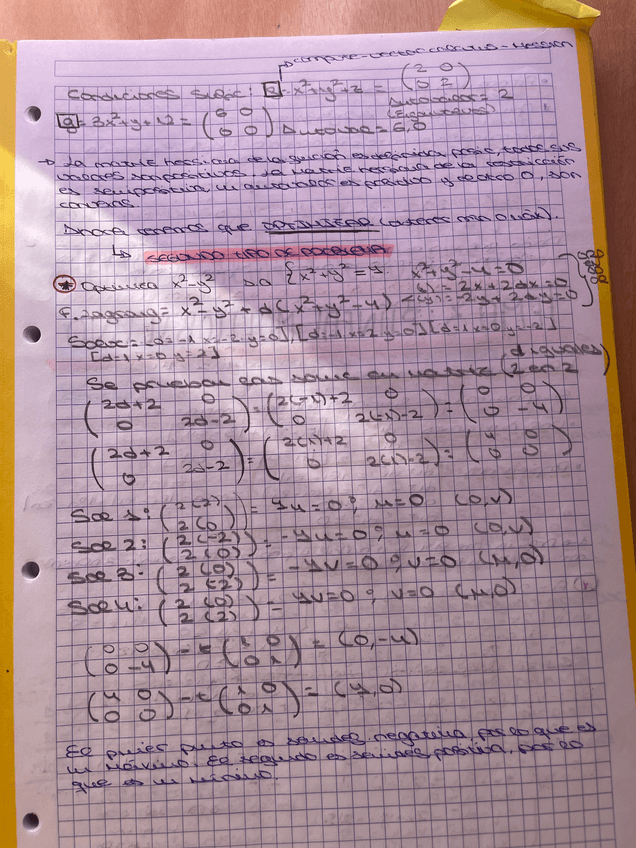 Condiciones sufic: f = x²+y²+2 = (2 0 / 0 2) Autovalores = 2
g = 3x²+y+12 = (6 0 / 0 0) Autovalores = 6,0
→ La matriz hessiana de la función es definida positiva, todos sus
valores son positivos. La matriz hessiana de la restricción
es semipositiva, un autovalor es positivo y el otro 0, son
convexas.
Ahora tenemos que OPTIMIZAR
↳ SEGUNDO TIPO DE PROBLEMA
* Optimiza x²-y² s.a {x²+y²=4. x²+y²-4=0
F. Lagrang = x²-y²+d(x²+y²-4) (x) = 2x+2dx=0
(y) = -2y+2dy=0
Soluc = [d=-1 x=-2 y=0], [d=-1 x=2 y=0] [d=1 x=0 y=-2]
[d=1 x=0 y=2]
Se prueban las soluc en matriz (d iguales) (2 en 2)
(2d+2 0 / 0 2d-2) = (2(-1)+2 0 / 0 2(-1)-2) = (0 0 / 0 -4)
(2d+2 0 / 0 2d-2) = (2(1)+2 0 / 0 2(1)-2) = (4 0 / 0 0)
Sol 1: (2(2) / 2(0)) = 4u=0; u=0 (0,v)
Sol 2: (2(-2) / 2(0)) = -4u=0; u=0 (0,v)
Sol 3: (2(0) / 2(-2)) = -4v=0; v=0 (u,0)
Sol 4: (2(0) / 2(2)) = 4v=0; v=0 (u,0)
(0 0 / 0 -4) - t (1 0 / 0 1) = (0,-4)
(4 0 / 0 0) - t (1 0 / 0 1) = (4,0)
El primer punto es semidef negativa, por lo que es
un máximo. El segundo es semidef positiva, por lo
que es un mínimo.